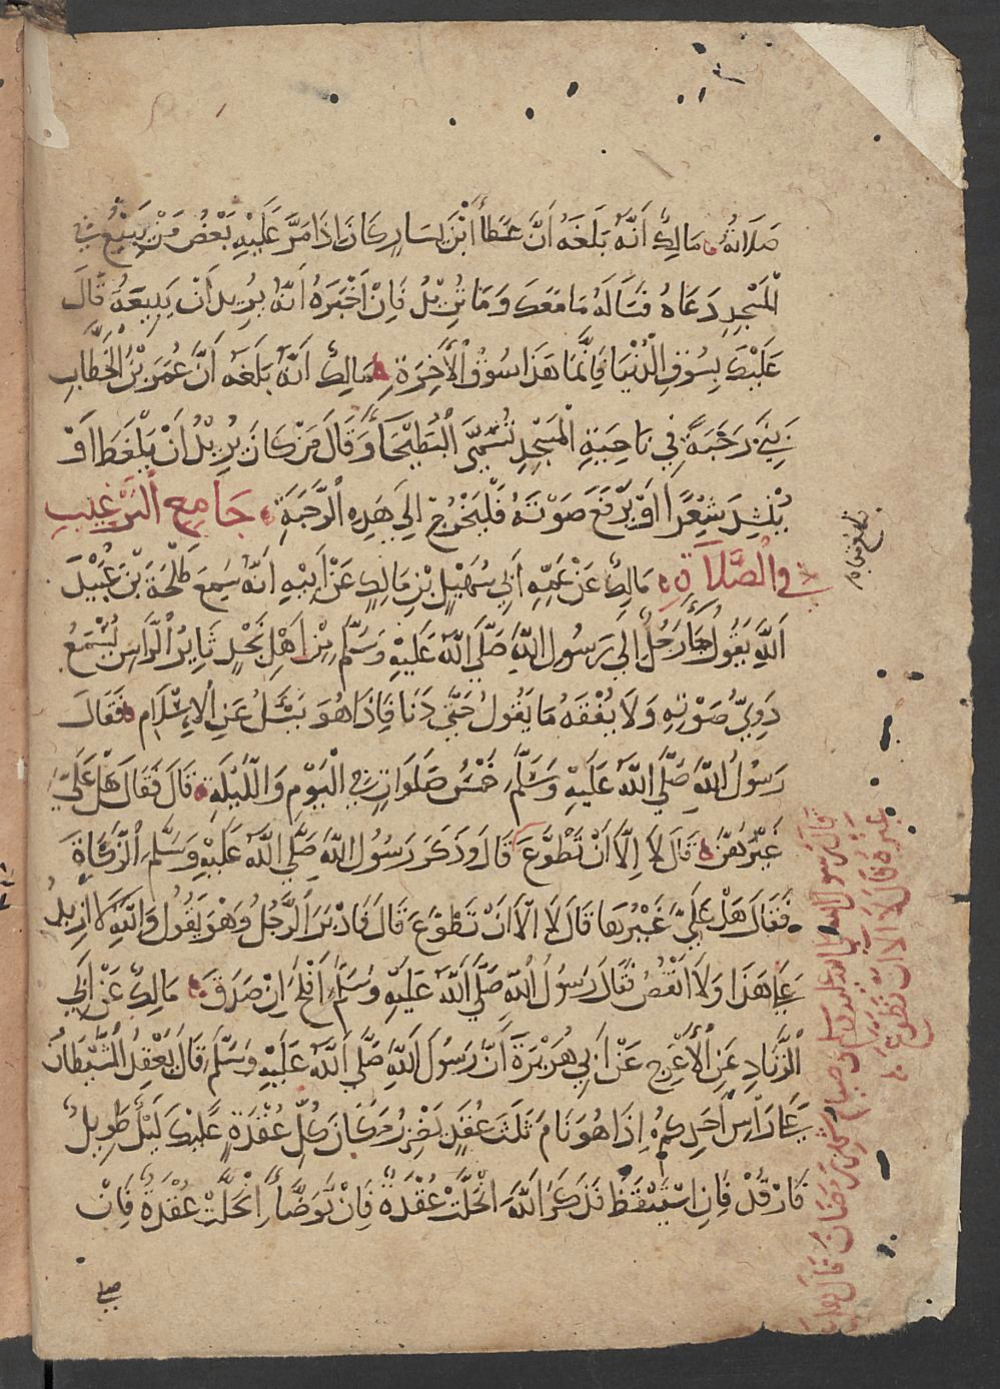 صَلَاتُهُ مَالِكٌ أَنَّهُ بَلَغَهُ أَنَّ عَطَاءَ ابْنَ يَسَارٍ كَانَ إِذَا مَرَّ عَلَيْهِ بَعْضُ مَنْ يَبِيعُ فِي
الْمَسْجِدِ دَعَاهُ فَسَالَهُ مَا مَعَكَ وَمَا تُرِيْدُ فَإِنْ أَخْبَرَهُ أَنَّهُ يُرِيدُ أَنْ يَبِيعَهُ قَالَ
عَلَيْكَ بِسُوقِ الدُّنْيَا فَإِنَّمَا هَذَا سُوقُ الْأَخِرَةِ مَالِكٌ أَنَّهُ بَلَغَهُ أَنَّ عُمَرَ بْنَ الْخَطَّابِ
بَنَى رَحَبَةً فِي نَاحِيَةِ الْمَسْجِدِ تُسَمَّى الْبُطَيْحَاءَ وَقَالَ مَنْ كَانَ يُرِيْدُ أَنْ يَلْغَطَ اَوْ
يُنْشِدَ شِعْرًا اَوْ يَرْفَعَ صَوْتَهُ فَلْيَخْرُجْ إِلَى هَذِهِ الرَّحَبَةِ جَامِع التَّرْغِيبِ
فِي الصَّلَاةِ مَالِكٌ عَنْ عَمِّهِ أَبِي سُهَيْلِ بْنِ مَالِكٍ عَنْ أَبِيْهِ أَنَّهُ سَمِعَ طَلْحَةَ بْنَ عُبَيْدِ
اَللَّهِ يَقُولُ جَاءَ رَجُلٌ إِلَى رَسُولِ اللَّهِ صَلَّى اللَّهُ عَلَيْهِ وَسَلَّمَ مِنْ أَهْلِ نَجْدٍ ثَايِرُ الرَّاسِ يُسْمَعُ
دَوِيُّ صَوْتِهِ وَلَا يُفْقَهُ مَا يَقُولُ حَتَّى دَنَا فَإِذَا هُوَ يَسْئَلُ عَنِ الْإِسْلَامِ فَقَالَ
رَسُولُ اللَّهِ صَلَّى اللَّهُ عَلَيْهِ وَسَلَّمَ خَمْسُ صَلَوَاتٍ فِي الْيَوْمِ وَاللَّيْلَةِ قَالَ فَقَالَ هَلْ عَلَيَّ
غَيْرُهُنَّ قَالَ لَا إِلَّا أَنْ تَطَّوَّعَ قَالَ وَذَكَرَ رَسُولُ اللَّهِ صَلَّى اللَّهُ عَلَيْهِ وَسَلَّمَ الزَّكَاةَ
فَقَالَ هَلْ عَلَيَّ غَيْرُهَا قَالَ لَا إِلَّا أَنْ تَطَّوَّعَ قَالَ فَادْبَرَ الرَّجُلُ وَهْوَ يَقُولُ وَاللَّهِ لَا ازِيدُ
عَلَى هَذَا وَلَا أَنْقُصُ فَقَالَ رَسُولُ اللَّهِ صَلَّى اللَّهُ عَلَيْهِ وَسَلَّمَ أَفْلَحَ إِنْ صَدَقَ مَالِكٌ عَنْ أَبِي
الزِّنَادِ عَنِ الْأَعْرَجِ عَنْ أَبِي هُرَيْرَةَ أَنَّ رَسُولَ اللَّهِ صَلَّى اللَّهُ عَلَيْهِ وَسَلَّمَ قَالَ يَعْقِدُ الشَّيْطَانُ
عَلَى رَاسِ أَحَدِكُمْ إِذَا هُوَ نَامَ ثَلَثَ عُقَدٍ يَضْرِبُ مَكَانَ كُلِّ عُقْدَةٍ عَلَيْكَ لَيْلٌ طَوِيلٌ
فَارْقُدْ فَإِنِ اسْتَيْقَظَ فَذَكَرَ اللَّهَ انْحَلَّتْ عُقْدَةٌ فَإِنْ تَوَضَّأَ انْحَلَّتْ عُقْدَةٌ فَإِنْ
صلى
قال رسول الله صلى الله عليه وسلم وصيام شهر رمضان قال هل على
غيره قال لا الا ان تطوع